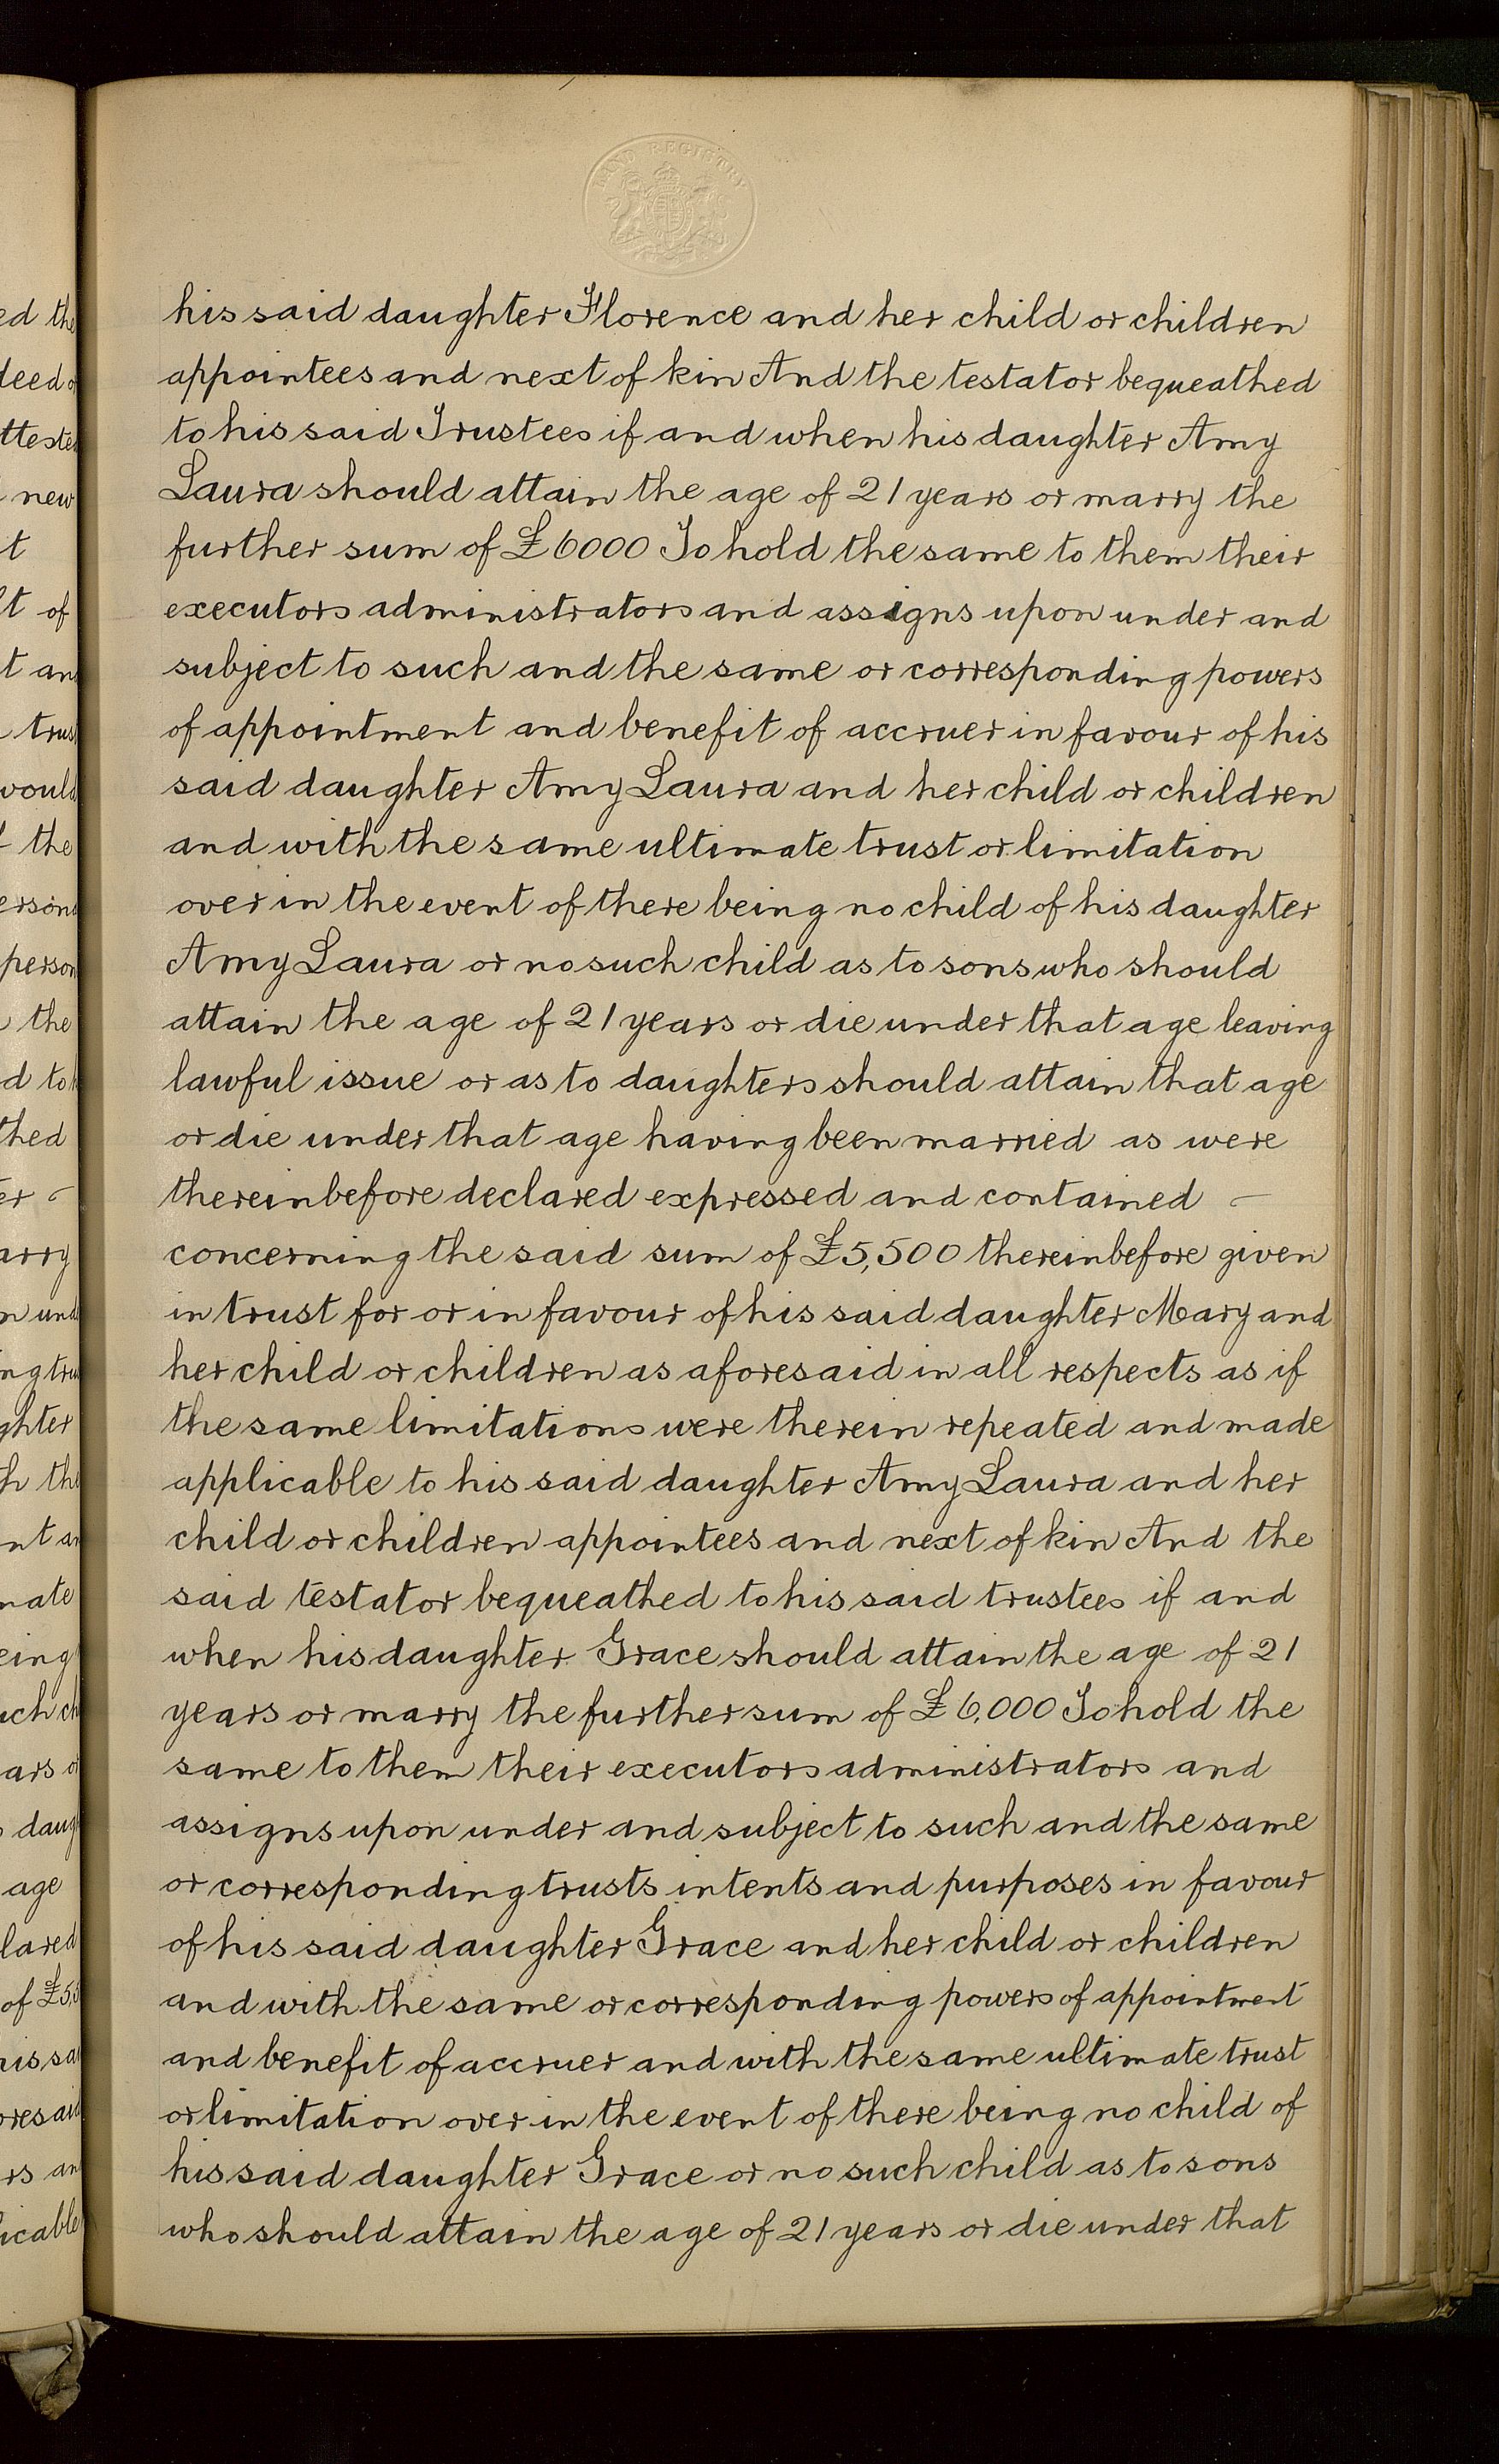 LAND REGISTRY
his said daughter Florence and her child or children
appointees and next of kin And the testator bequeathed
to his said Trustees if and when his daughter Amy
Laura should attain the age of 21 years or marry the
further sum of £6000 To hold the same to them their
executors administrators and assigns upon under and
subject to such and the same or corresponding powers
of appointment and benefit of accruer in favour of his
said daughter Amy Laura and her child or children
and with the same ultimate trust or limitation
over in the event of there being no child of his daughter
Amy Laura or no such child as to sons who should
attain the age of 21 years or die under that age leaving
lawful issue or as to daughters should attain that age
or die under that age having been married as were
thereinbefore declared expressed and contained
concerning the said sum of £5,500 thereinbefore given
in trust for or in favour of his said daughter Mary and
her child or children as aforesaid in all respects as if
the same limitations were therein repeated and made
applicable to his said daughter Amy Laura and her
child or children appointees and next of kin And the
said testator bequeathed to his said trustees if and
when his daughter Grace should attain the age of 21
years or marry the further sum of £6,000 To hold the
same to them their executors administrators and
assigns upon under and subject to such and the same
or corresponding trusts intents and purposes in favour
of his said daughter Grace and her child or children
and with the same or corresponding powers of appointment
and benefit of accruer and with the same ultimate trust
or limitation over in the event of there being no child of
his said daughter Grace or no such child as to sons
who should attain the age of 21 years or die under that